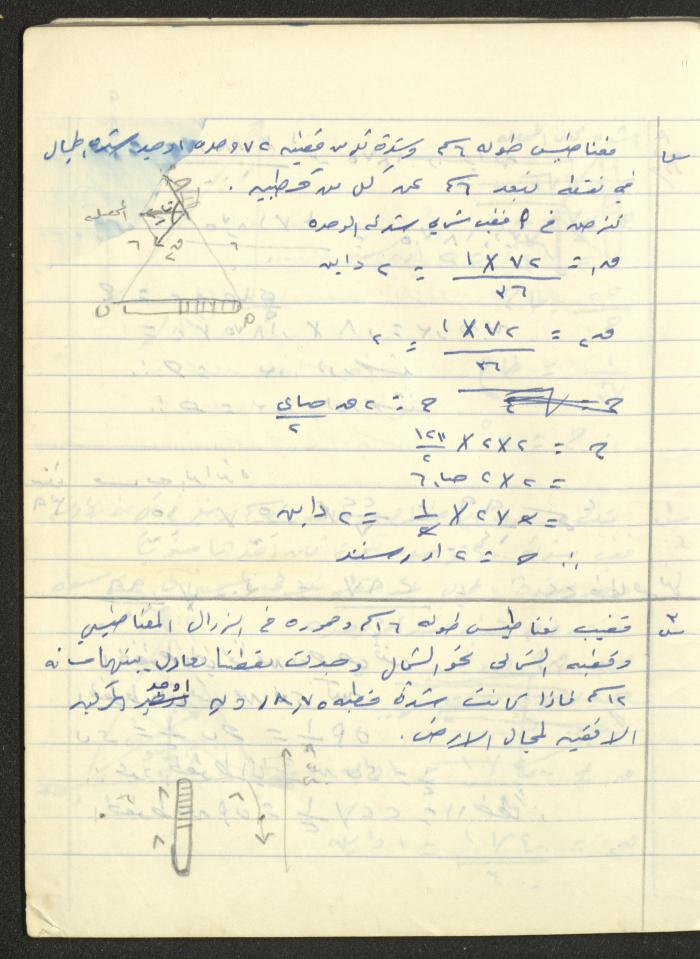 مغناطيس طوله ٦ سم وشدة كل من قطبيه ٧٢ وحدة اوجد شدة المجال
في نقطة تبعد ٦ سم عن كل من قطبيه .
نفرض في م قطب شمالي شدته الوحده
المحصله
٦ ٦
ق١ = ٧٢ × ١ / ٣٦ = ٢ داين
ق٢ = ٧٢ × ١ / ٣٦ = ٢
ح = ٢ ق جتا ى / ٢
ح = ٢ × ٢ × ١٢٠ / ٢
= ٢ × ٢ جتا ٦٠
= ٢ × ٢ × ١ / ٢ = ٢ داين
∴ ح = ٢ اورستد
قضيب مغناطيس طوله ١٦ سم ومحوره في الزوال المغناطيسي
وقطبه الشمالي نحو الشمال وجدت نقطتا تعادل بينهما مسافة
١٢ سم فاذا كانت شدة قطبه اوجد المركبة
الافقيه لمجال الارض .